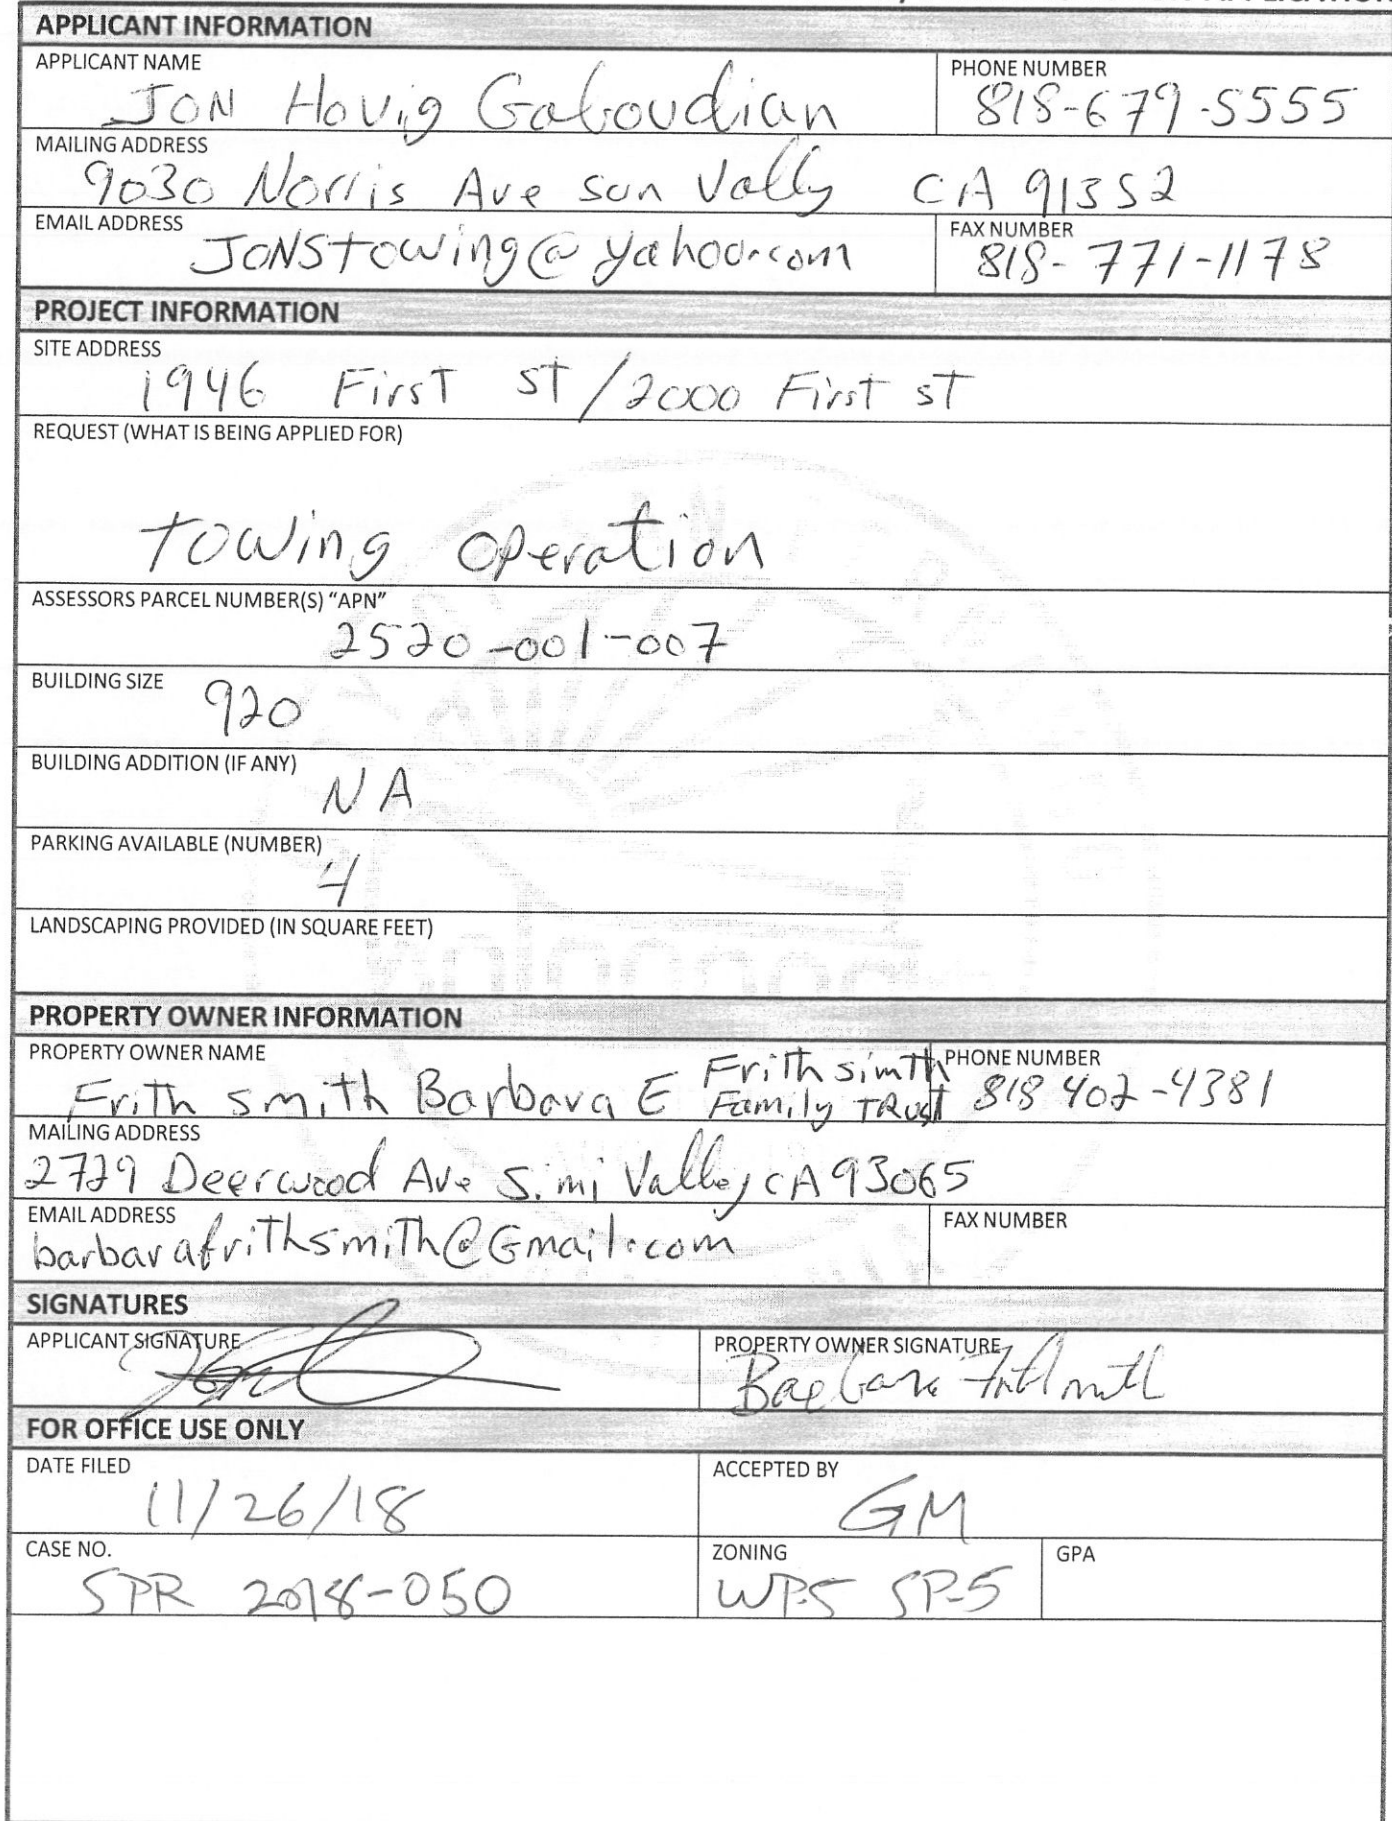 APPLICANT INFORMATION
APPLICANT NAME
JON Hovig Gaboudian
PHONE NUMBER
818-679-5555
MAILING ADDRESS
9030 Norris Ave sun Vally CA 91352
EMAIL ADDRESS
JONStowing@yahoo.com
FAX NUMBER
818-771-1178
PROJECT INFORMATION
SITE ADDRESS
1946 First st/2000 First st
REQUEST (WHAT IS BEING APPLIED FOR)
towing operation
ASSESSORS PARCEL NUMBER(S) "APN"
2520-001-007
BUILDING SIZE
920
BUILDING ADDITION (IF ANY)
NA
PARKING AVAILABLE (NUMBER)
4
LANDSCAPING PROVIDED (IN SQUARE FEET)
PROPERTY OWNER INFORMATION
PROPERTY OWNER NAME
Frith smith Barbara E Frith simth
Family TRust
PHONE NUMBER
818 402-4381
MAILING ADDRESS
2729 Deerwood Ave Simi Valley CA 93065
EMAIL ADDRESS
barbarafrithsmith@Gmail.com
FAX NUMBER
SIGNATURES
APPLICANT SIGNATURE
PROPERTY OWNER SIGNATURE
Barbara Frithsmith
FOR OFFICE USE ONLY
DATE FILED
11/26/18
ACCEPTED BY
GM
CASE NO.
SPR 2018-050
ZONING
WP-5 SP-5
GPA